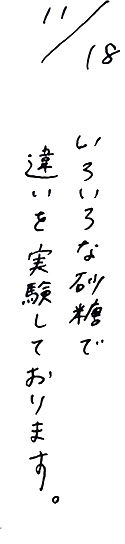 11/18
いろいろな砂糖で
違いを実験しております。